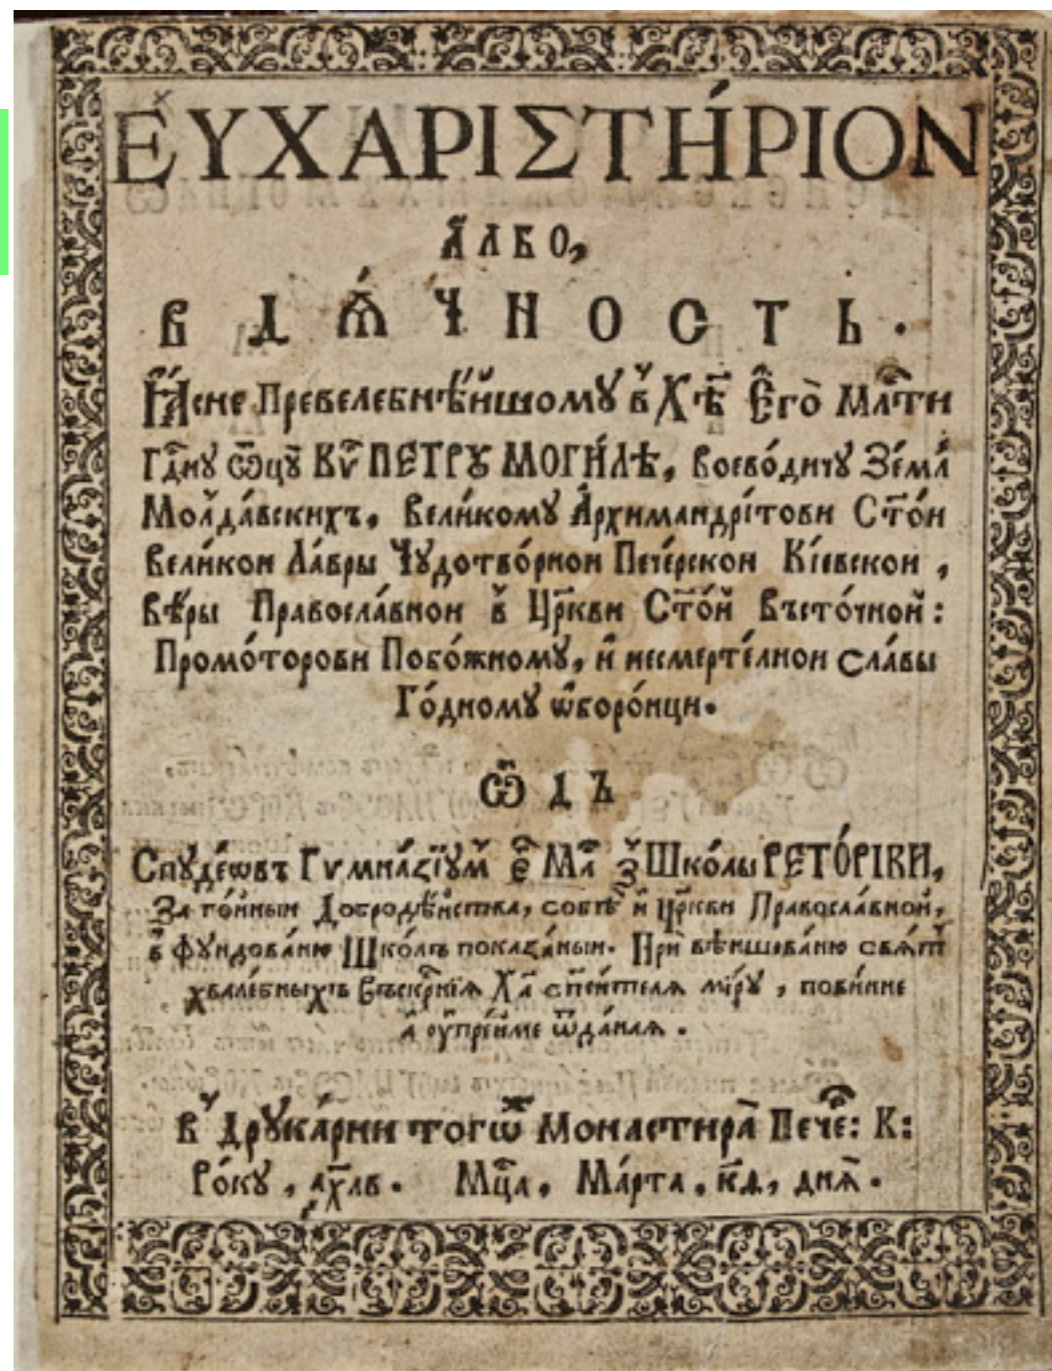 ЕУХАРІΣТΉРІОN
А҆ЛБО,
ВДѦ́ЧНОСТЬ.
Ꙗ҆́сне Превелебнѣ́йшому в̾ Хѣ҃ Є҆го̀ Мл҃ти
Гд҃ну ѿцꙋ̀ Кѵ҃ ПЕТРꙊ МОГИ́ЛѢ, Воево́дичꙋ Земл̾
Молда́вскихъ, Вели́комꙋ А҆рхимандрі́тови Ст҃о́и
Вели́кои Ла́вры Чꙋдотво́рнои Пече́рскои Кі́евскои,
Вѣ́ры Правосла́внои в̾ Цр҃кви Ст҃о́й Въсто́чной:
Промо́торови Побо́жному, и҆ несмерте́лнои сла́вы
Го́дномꙋ ѡ҆боро́нци.
Ѿ Д Ъ
Спꙋде́ѡвъ Гѵмна́зїꙋм̾ є҆҃ Мл҃ з̾ Шко́лы РЕТО́РІКИ,
За го́йныи Добродѣ́йства, собѣ и҆ Цр҃кви Правосла́вной,
в̾ фꙋндова́ню Шко́лъ пока́заныи. Прѝ вѣншова́ню свѧ́т̾
хвале́бныхъ Въскр҃нїѧ Ха҃ сп҃си́телѧ мі́рꙋ, пови́нне
а҆ оу҆пре́йме ѿда́наѧ.
в̾ Дрꙋка́рни тогѡ́ж Монастирѧ̀ Пече̑: К:
Ро́кꙋ, ах҃лв. Мц҃а, Ма́рта, к҃д, днѧ̀.